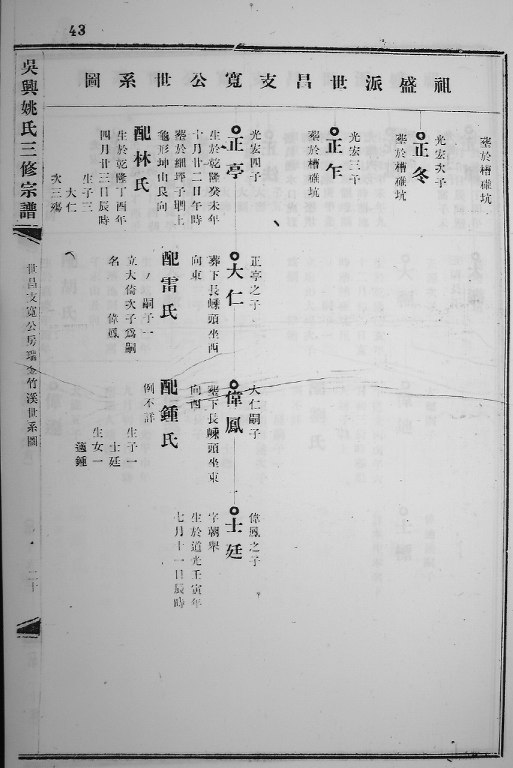 43
祖盛派世昌支寬公世系圖
吳興姚氏三修宗譜
世昌支寬公房瑞金竹溪世系圖
二十
葬於槽碓坑
光宏次子
正冬
葬於槽碓坑
光宏三子
正乍
葬於槽碓坑
光宏四子
正亭
生於乾隆癸未年
十月廿二日午時
龜形坤山艮向
配林氏
生於乾隆丁酉年
四月廿三日辰時
生子三
大仁
次三殤
正亭之子
大仁
葬下長崠頭坐西
向東
配雷氏
嗣子一
立大倫次子為嗣
名 偉鳳
大仁嗣子
偉鳳
葬下長崠頭坐東
向西
配鍾氏
例不詳
生子一
士廷
生女一
適鍾
偉鳳之子
士廷
字朝舉
生於道光壬寅年
七月十一日辰時